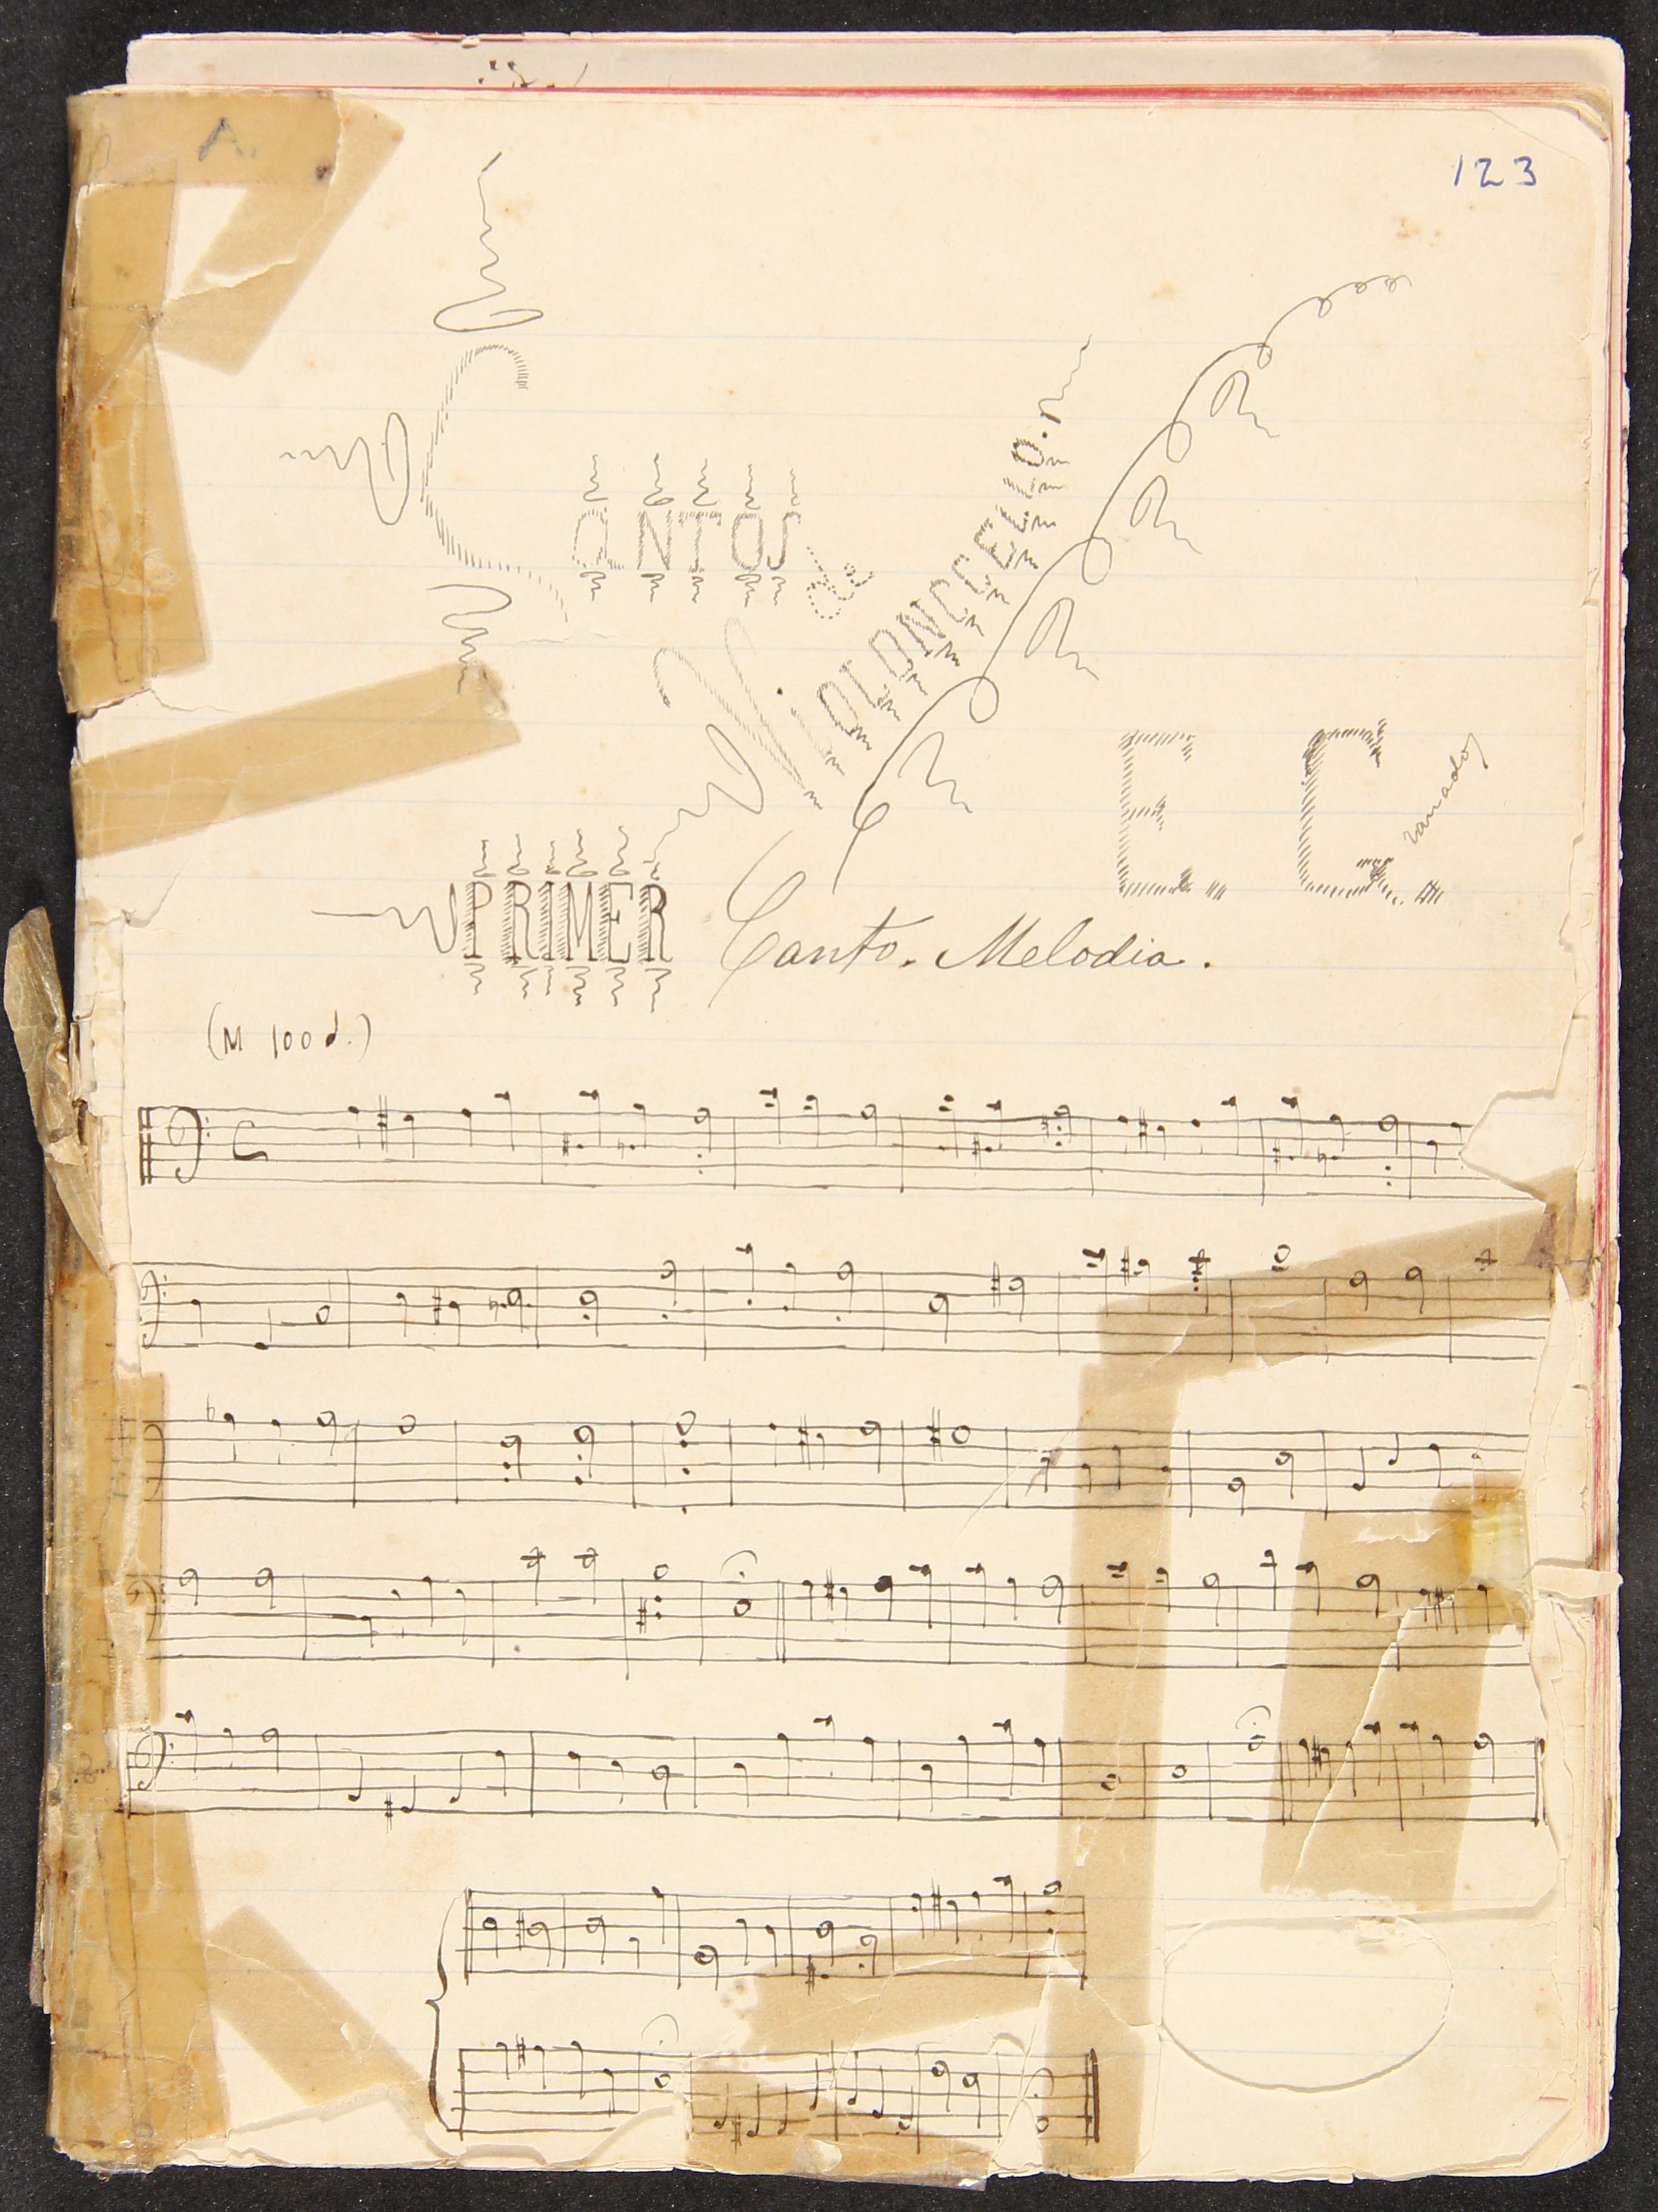 A.
123
CANTOS de
VIOLONCCELLO.
E. G.
ranados
PRIMER Canto. Melodia.
(M 100 d.)